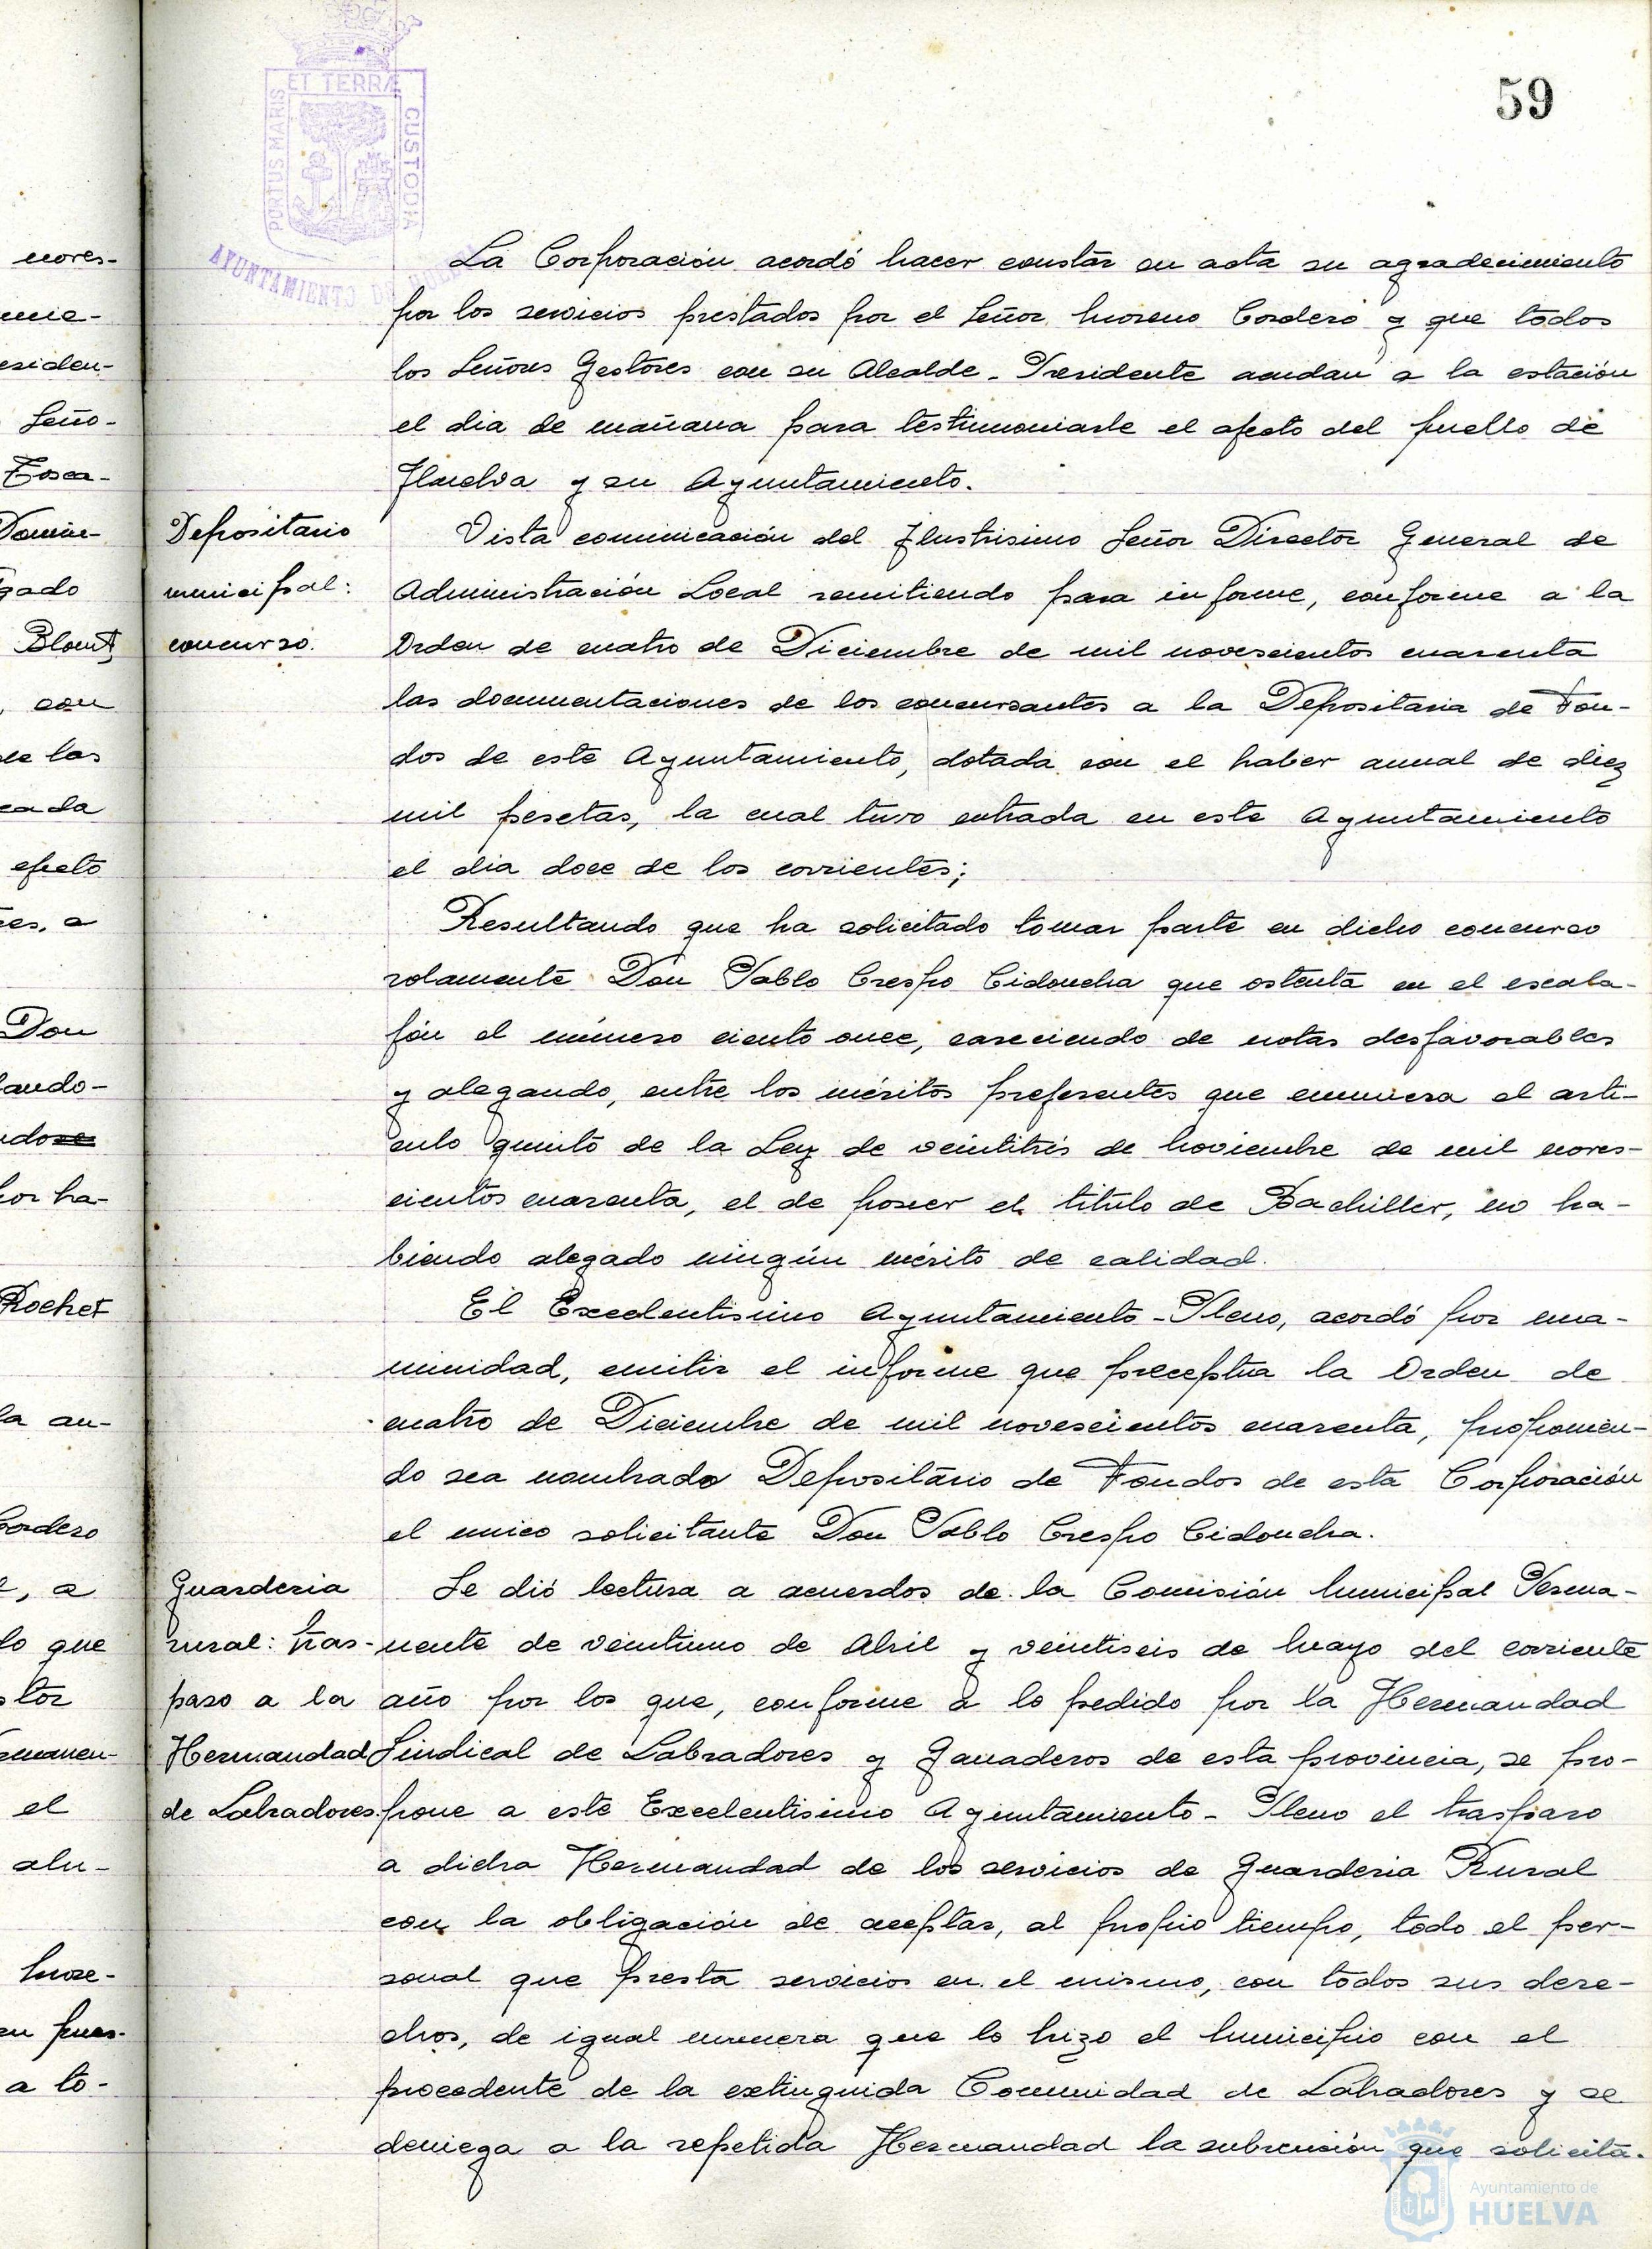 59
ET TERRÆ
PORTUS MARIS
CUSTODIA
AYUNTAMIENTO DE
La Corporación acordó hacer constar en acta su agradecimiento
por los servicios prestados por el Señor Moreno Cordero y que todos
los Señores Gestores con su Alcalde-Presidente acudan a la estación
el dia de mañana para testimoniarle el afecto del pueblo de
Huelva y su Ayuntamiento.
Depositario
municipal:
concurso.
Vista comunicación del Ilustrisimo Señor Director General de
Administración Local remitiendo para informe, conforme a la
Orden de cuatro de Diciembre de mil novescientos cuarenta
las documentaciones de los concursantes a la Depositaria de Fon-
dos de este Ayuntamiento, dotada con el haber anual de diez
mil pesetas, la cual tuvo entrada en este Ayuntamiento
el dia doce de los corrientes;
Resultando que ha solicitado tomar parte en dicho concurso
solamente Don Pablo Crespo Cidoncha que ostenta en el escala-
fón el número ciento once, careciendo de notas desfavorables
y alegando, entre los méritos preferentes que enumera el arti-
culo quinto de la Ley de veintitrés de Noviembre de mil noves-
cientos cuarenta, el de poseer el titulo de Bachiller, no ha-
biendo alegado ningún mérito de calidad.
El Excelentisimo Ayuntamiento-Pleno, acordó por una-
nimidad, emitir el informe que preceptua la Orden de
cuatro de Diciembre de mil novescientos cuarenta, proponien-
do sea nombrado Depositario de Fondos de esta Corporación
el unico solicitante Don Pablo Crespo Cidoncha.
Guarderia
rural: tras-
paso a la
Hermandad
de Labradores.
Se dió lectura a acuerdos de la Comisión Municipal Perma-
nente de veintiuno de Abril y veintiseis de Mayo del corriente
año por los que, conforme a lo pedido por la Hermandad
Sindical de Labradores y Ganaderos de esta provincia, se pro-
pone a este Excelentisimo Ayuntamiento-Pleno el traspaso
a dicha Hermandad de los servicios de Guarderia Rural
con la obligación de aceptar, al propio tiempo, todo el per-
sonal que presta servicios en el mismo, con todos sus dere-
chos, de igual manera que lo hizo el Municipio con el
procedente de la extinguida Comunidad de Labradores y se
deniega a la repetida Hermandad la subvención que solicita.
noves-
esiden-
Seño-
Tosca-
gado
con
cada
efecto
Don
por ha-
Rochet
la au-
Cordero
lo que
el
alu-
More-
a to-
Ayuntamiento de
HUELVA